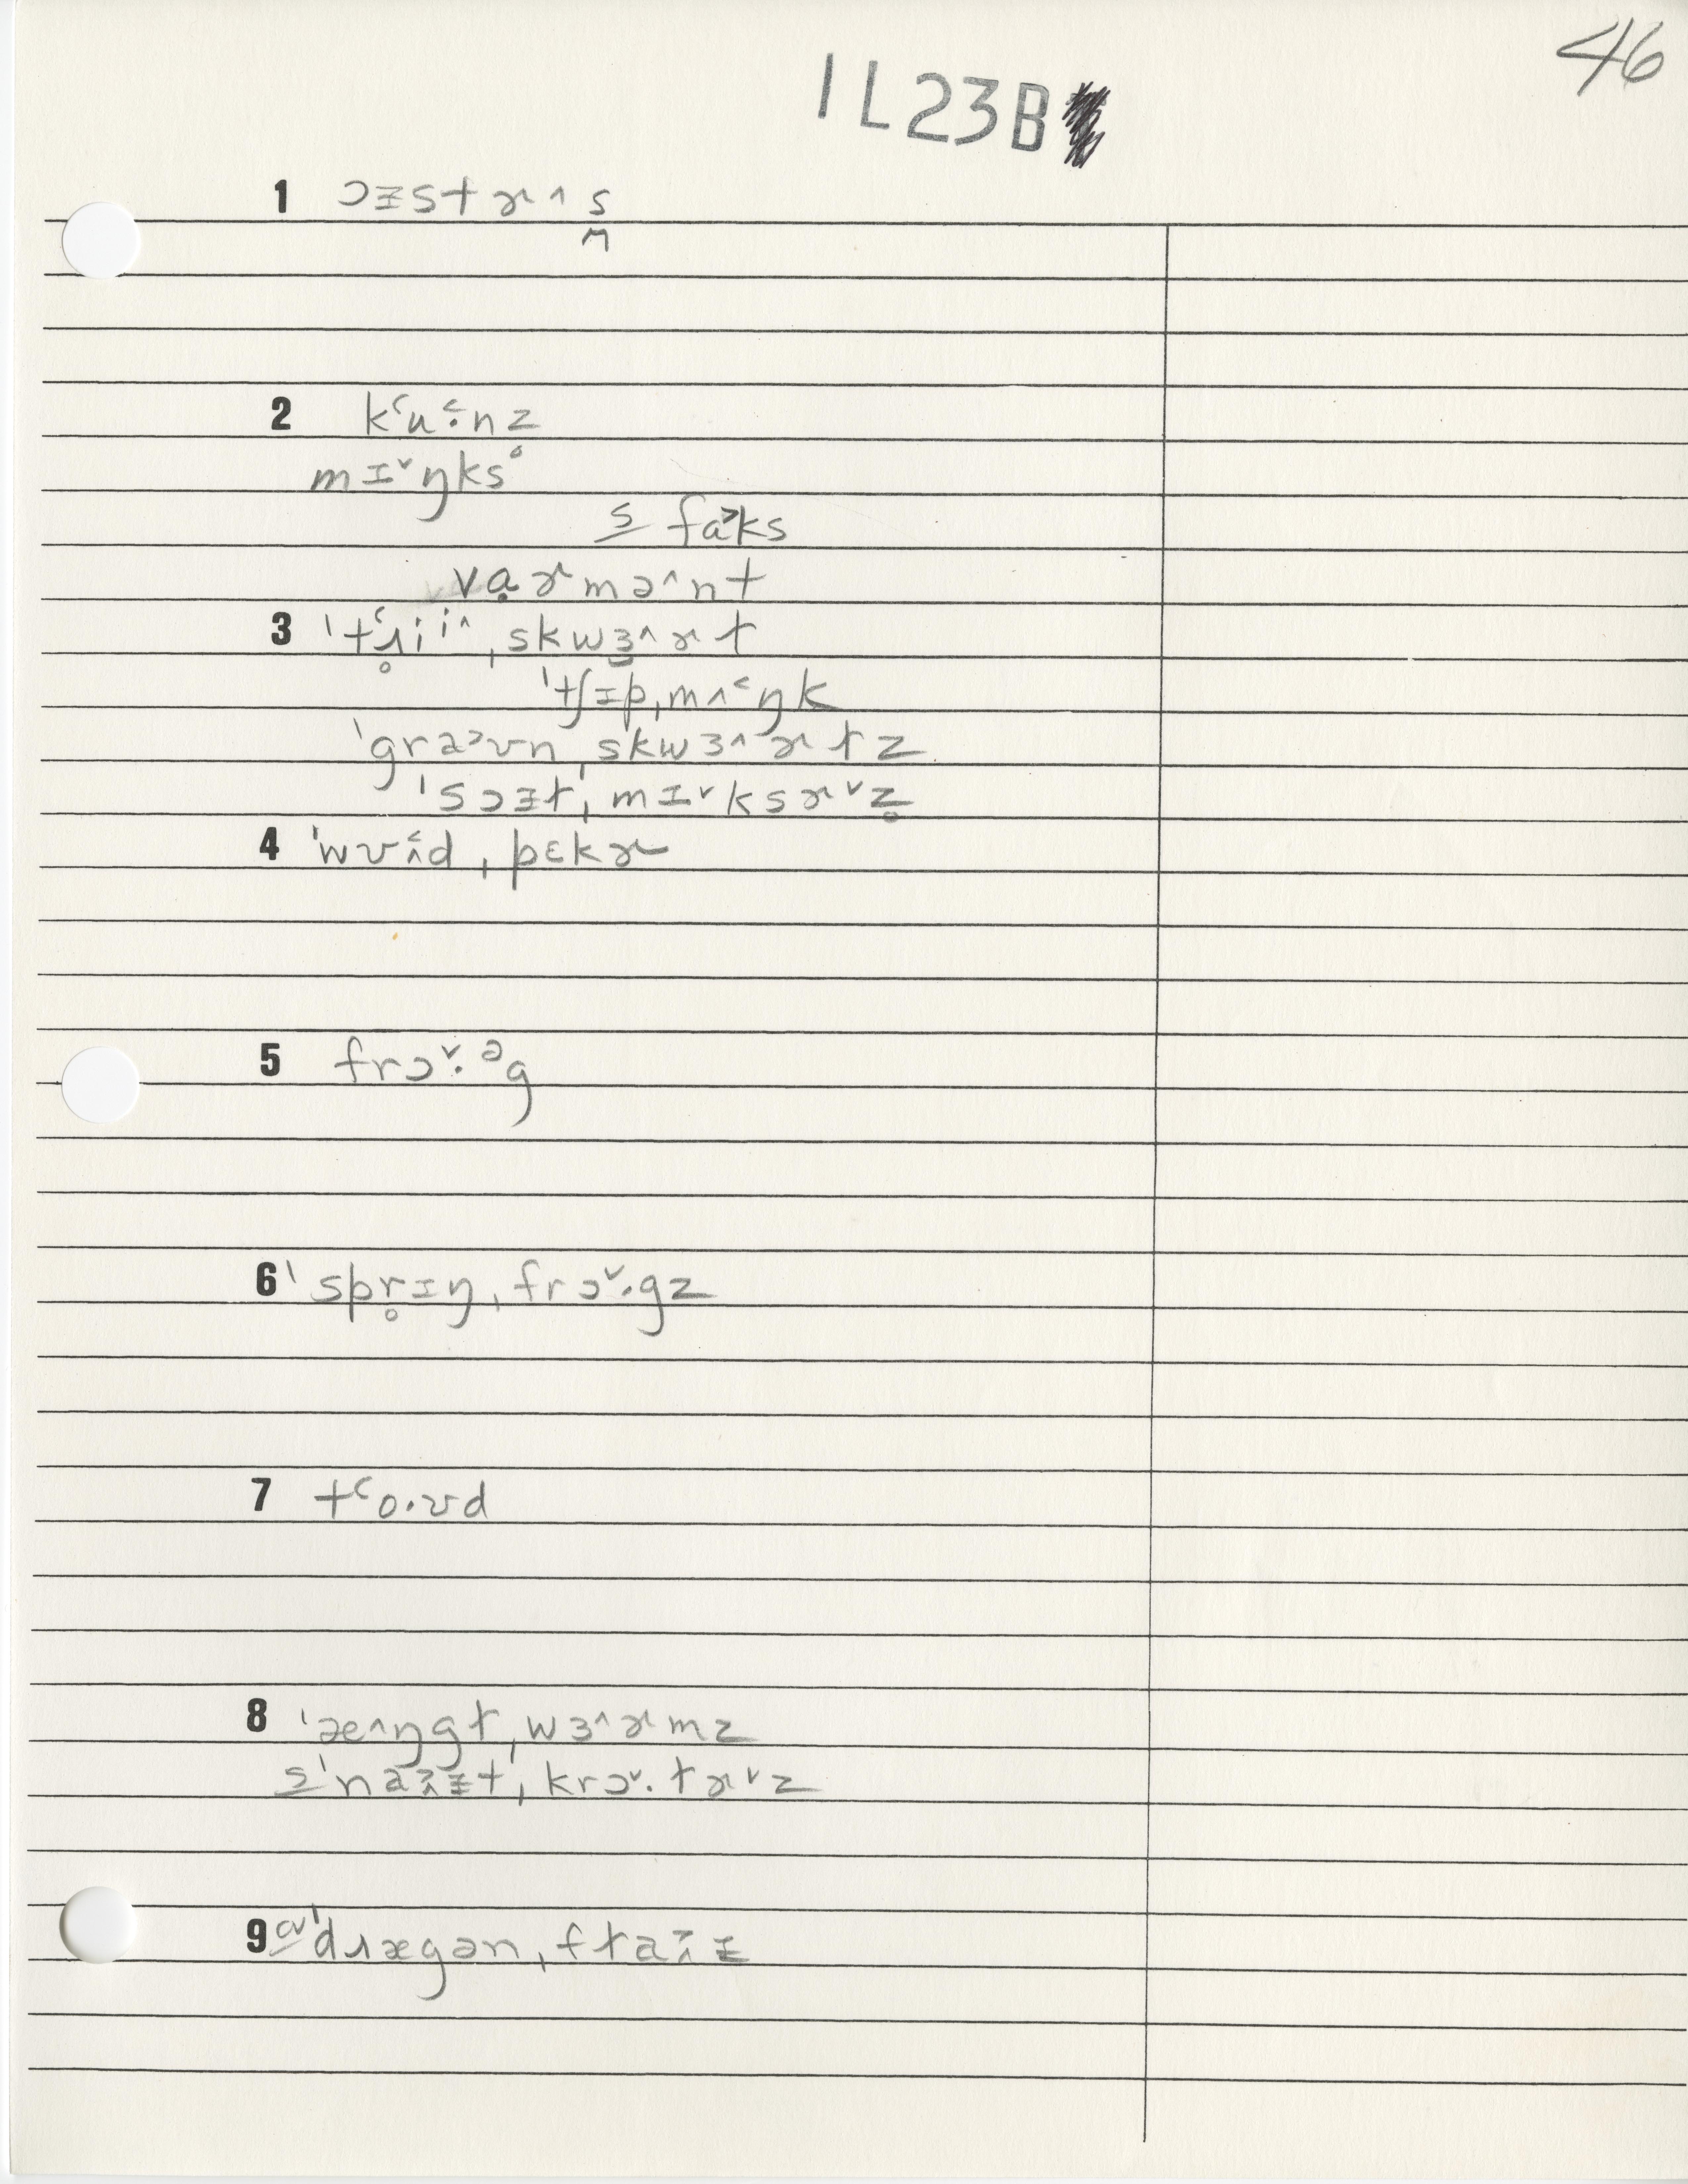 46
1L23B
1 ɔᵻstɚ^s̭
2 kʻu˂·nz
mɪˇŋks°
s̲ fa˃ks
vạɚmə^nt
3 ˈtʻɹ̥iⁱ^ˌskwɜ̮^ɚɫ
ˈtʃɪpˌmʌ˂ŋk
ˈgra˃ʊnˌskwɜ^ɚɫz
ˈsɔᵻɫˌmɪˇksɚˇz̥
4 ˈwʊ˂^dˌpɛkɚ
5 frɔˇ·ᵊg
6 ˈspr̥ɪŋˌfrɔˇ·gz
7 tʻo·ʊd
8 ˈæ^ŋgɫˌwɜ^ɚmz
s̲ˈna˃^ᵻtˌkrɔˇ·ɫɚˇz
9 ˈdɹægənˌfɫa˃^ᵻ